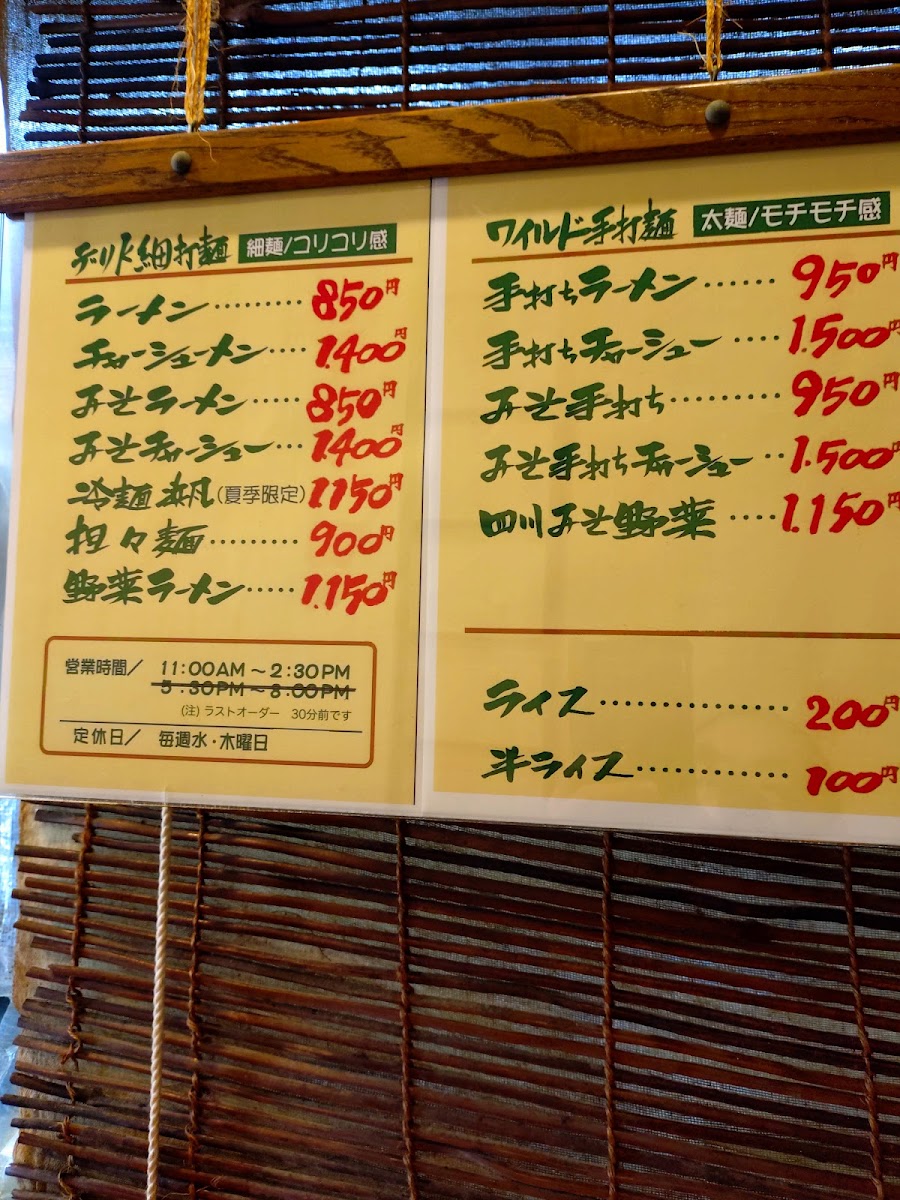 チリド細打麺 細麺/コリコリ感
ラーメン ········· 850円
チャーシューメン ···· 1.400円
みそラーメン ····· 850円
みそチャーシュー ··· 1400円
冷麺 (夏季限定) 1.150円
担々麺 ········· 900円
野菜ラーメン ····· 1.150円
営業時間/ 11:00AM~2:30PM
5:30PM~8:00PM
(注) ラストオーダー 30分前です
定休日/ 毎週水・木曜日
ワイルド手打麺 太麺/モチモチ感
手打ちラーメン ······ 950円
手打ちチャーシュー ···· 1.500円
みそ手打ち ········· 950円
みそ手打ちチャーシュー ·· 1.500円
四川みそ野菜 ···· 1.150円
ライス ··············· 200円
半ライス ············· 100円